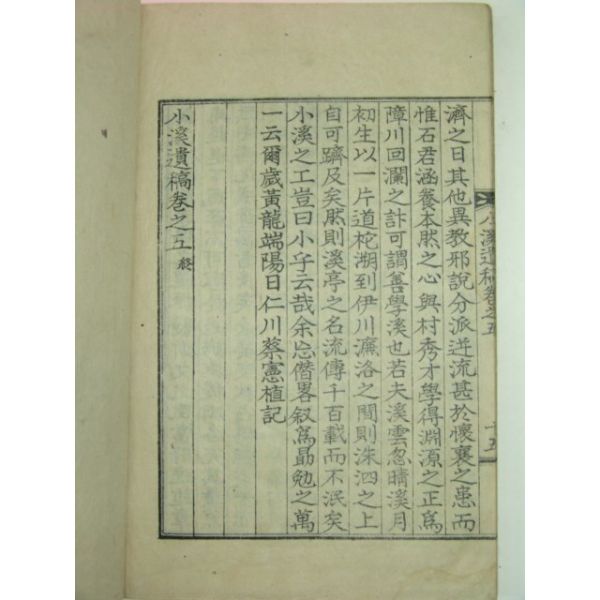 小溪遺稿卷之五
十五
濟之日其他異敎邪說分派迸流甚於懷襄之患而
惟石君涵養本然之心與村秀才學得淵源之正爲
障川回瀾之計可謂善學溪也若夫溪雲忽晴溪月
初生以一片道柁溯到伊川濂洛之間則洙泗之上
自可躋及矣然則溪亭之名流傳千百載而不泯矣
小溪之工豈曰小乎云哉余忘僭畧叙爲勗勉之萬
一云爾歲黃龍端陽日仁川蔡憲植記
小溪遺稿卷之五 終